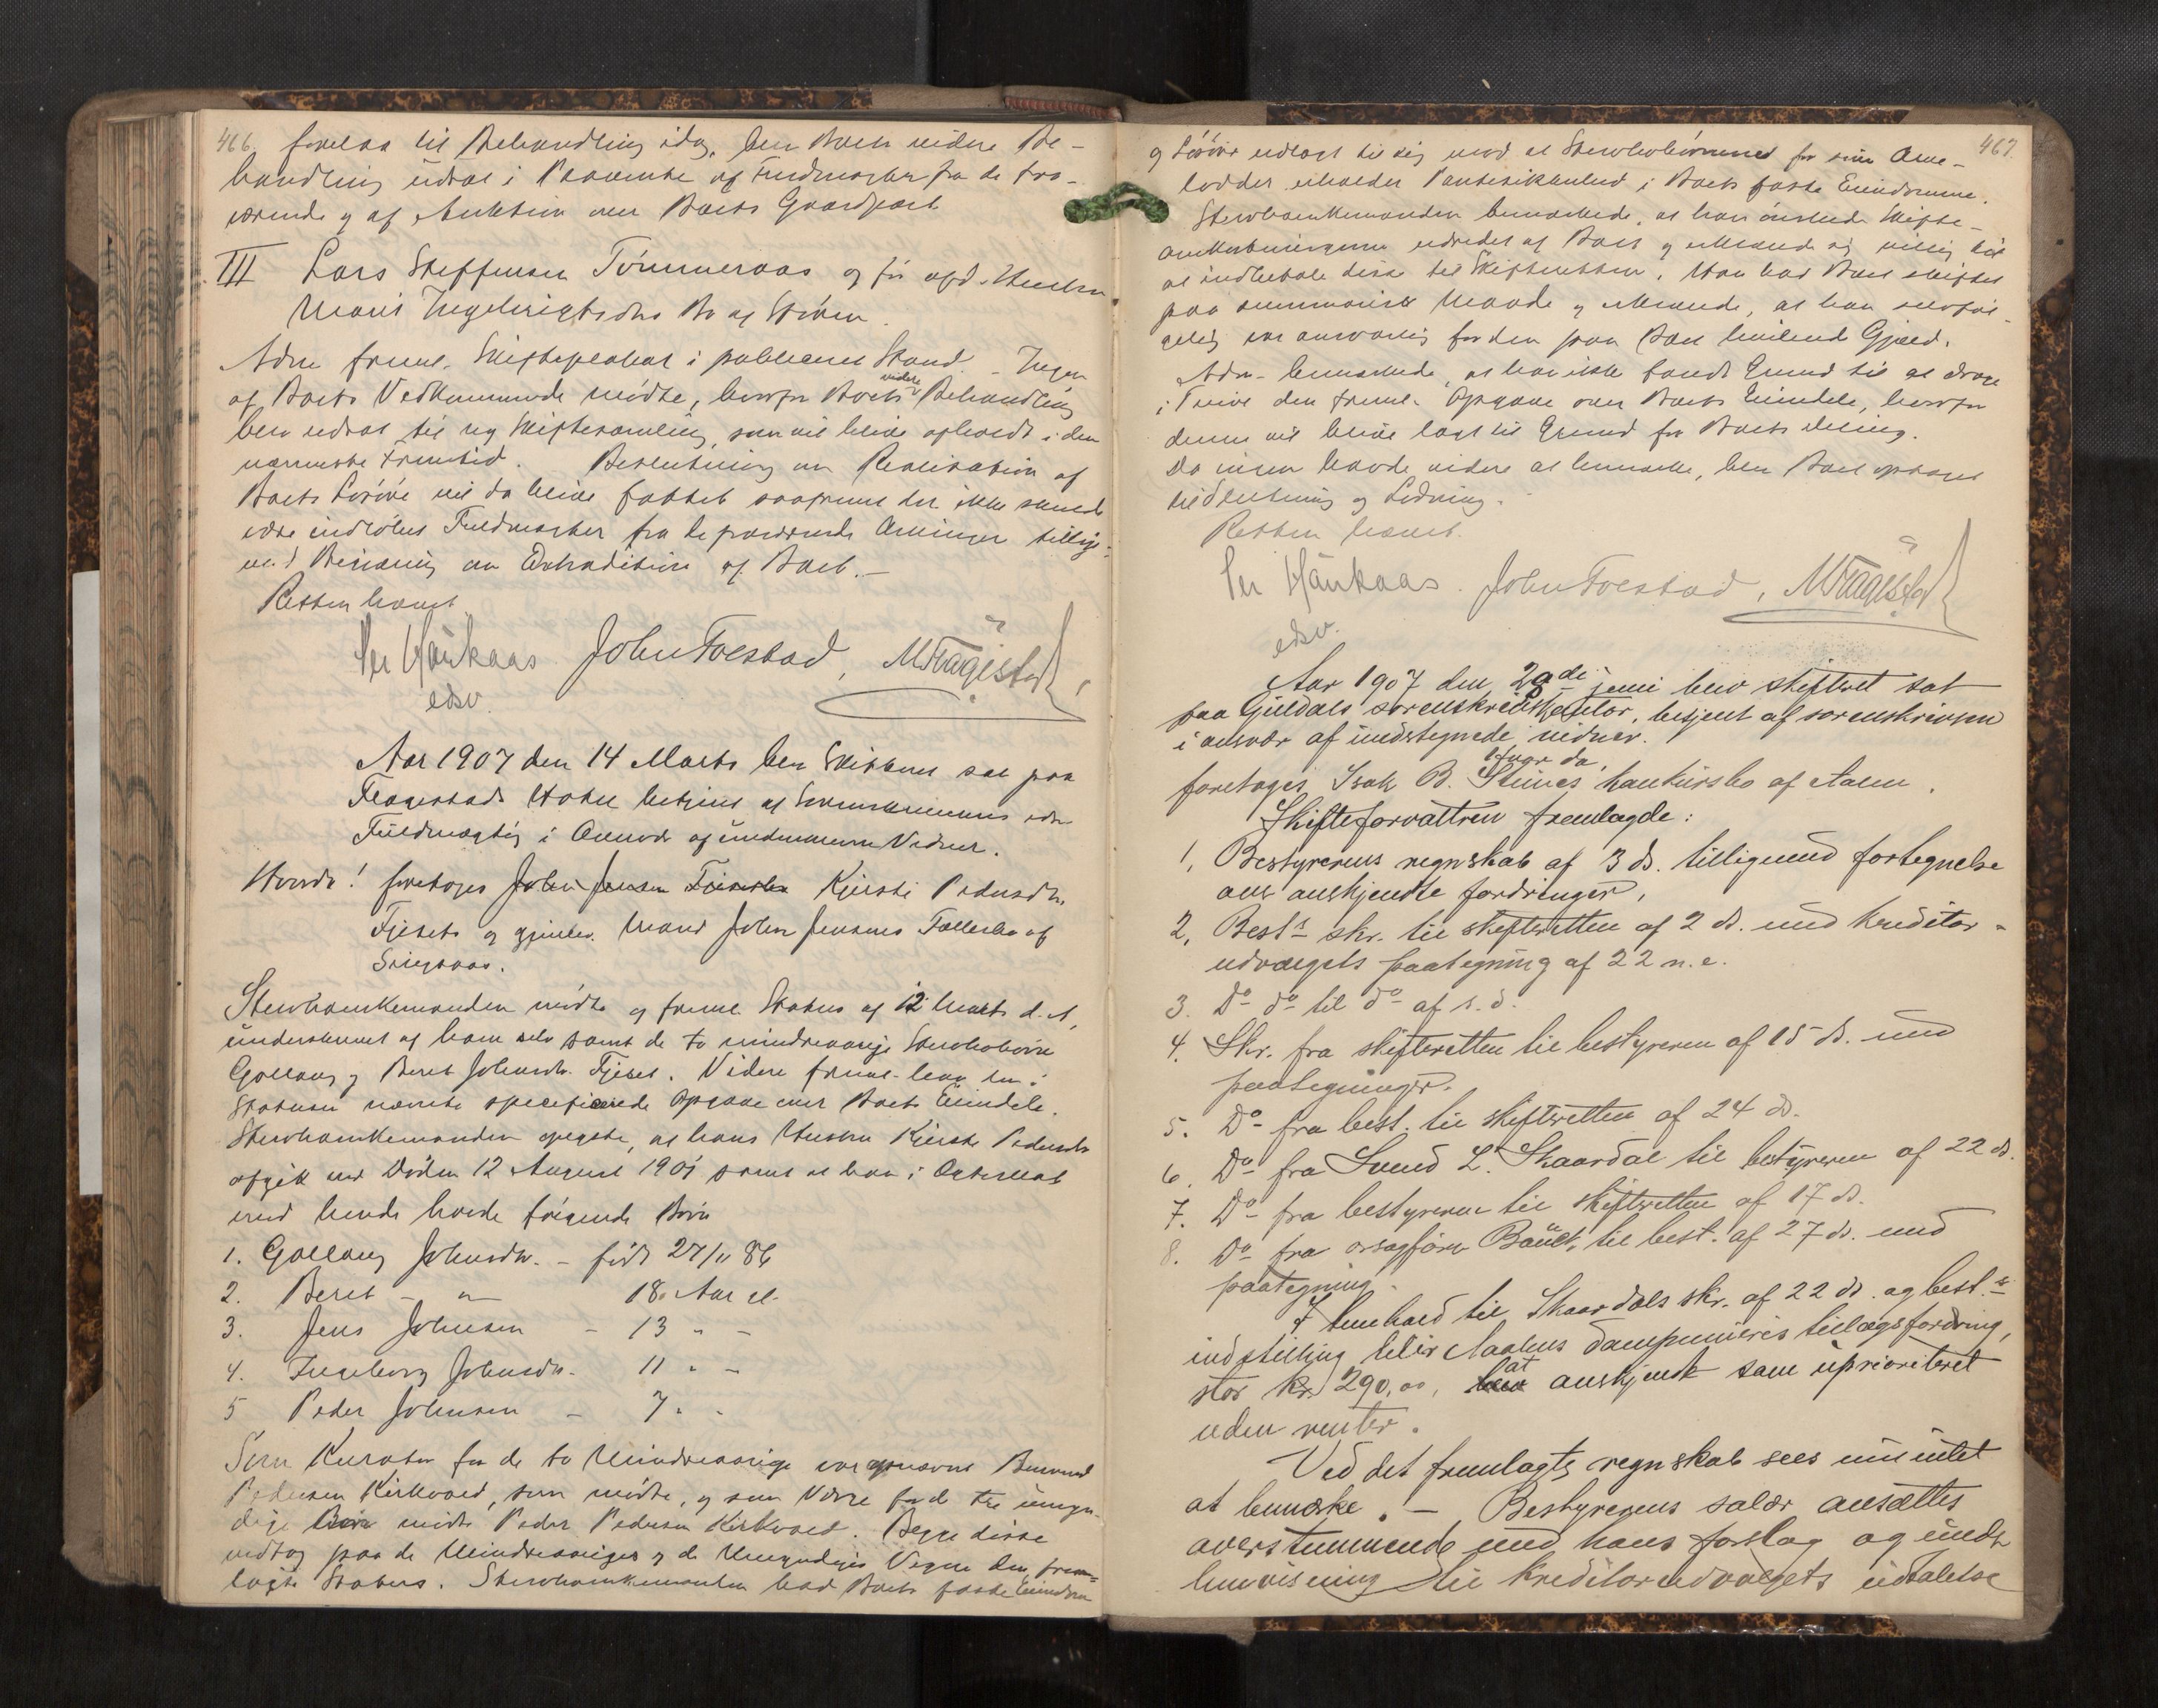 466.
forelaa til Behandling idag, blev Boets videre Be-
handling udsat i Paavente af Fuldmagter fra de fra-
værende og af Auktion over Boets Gaardpart
III Lars Steffensen Tømmeraas og før afd. Hustru
Marit Ingebrigtsdtrs Bo af Støren.
Adm. freml. Skifteplakat i publiceret Stand. - Ingen
af Boets Vedkommende mødte, hvorfor Boets videre Behandling
blev udsat til ny Skiftesamling, som vil blive afholdt i den
nærmeste Fremtid. Beslutning om Realisation af
Boets Løsøre vil da blive fattet saafremt der ikke maatte
være indløbet Fuldmagter fra de fraværende Arvinger tillige-
med Begjæring om Extradition af Boet. -
Retten hævet
Per Haukaas JohnFoestad, MFlagestad
edsv.
Aar 1907 den 14 Marts blev Skifteret sat paa
Flagestads Hotel betjent af Sorenskriverens edsv.
Fuldmægtig i Overvær af undertegnede Vidner.
Hvorda! foretoges John Jensen Fjeseths Kjersti Pedersdtr.
Fjeseth og gjenlev. Mand John Jensens Fællesbo af
Singsaas.
Stervboenkemanden mødte og freml. Status af 12 Marts d. A,
underskrevet af ham selv samt de to mindreaarige Stervbobørn
Gollaug og Beret Johnsdtr. Fjeset. Videre freml. han den i
Statusen nævnte specificerede Opgave over Boets Eiendele.
Stervboenkemanden opgav, at hans Hustru Kjersti Pedersdtr
afgik ved Døden 12 August 1901 samt at han i Ægteskab
med hende havde følgende Børn
1. Gollaug Johnsdtr. - født 27/11 86
2. Beret - " 18 Aar gl.
3. Jens Johnsen - 13 " -
4. Ingeborg Johnsdtr. 11 " -
5 Peder Johnsen - 7 " -
Som Kurator for de to Mindreaarige var opnævnt
Pedersen Kirkvold, som mødte, og som Værge for de tre umyn-
dige Børn mødte Peder Pedersen Kirkvold. Begge disse
vedtog paa de Mindreaariges og de Umyndiges Vegne den frem-
lagte Status. Stervboenkemanden bad Boets faste Eiendom
467.
og Løsøre udlagt til sig mod at Stervbobørnene for sine Arve-
lodder erholder Pantesikkerhed i Boets faste Eiendomme.
Stervboenkemanden bemærkede, at han ønskede Skifte-
omkostningerne udredet af Boet og erklærede sig villig til
at indbetale disse til Skifteretten. Han bad Boet sluttet
paa summarisk Maade og erklærede, at han selvføl-
gelig var ansvarlig for den paa Boet hvilende Gjæld.
Adm. bemærkede, at han ikke fandt Grund til at drage
i Tvivl den freml. Opgave over Boets Eiendele, hvorfor
denne vil blive lagt til Grund for Boets Deling.
Da ingen havde videre at bemærke, blev Boet optaget
til Slutning og Lodning.
Retten hævet.
Per Haukaas. JohnFoestad, MFlagestad
edsv.
Aar 1907 den 29de juni blev skifteret sat
paa Guldals sorenskriverkontor, betjent af sorenskriveren
i overvær af undertegnede vidner.
Hvor da,
foretoges Isak B. Steines konkursbo af Aalen.
Skifteforvaltren fremlagde:
1, Bestyrerens regnskab af 3 ds. tilligemed fortegnelse
over anerkjendte fordringer,
2, Best.s skr. til skifteretten af 2 ds. med kreditor-
udvalgets paategning af 22 n. e.
3. Do do til do af s. d.
4. Skr. fra skifteretten til bestyreren af 15 ds. med
paategninger.
5. Do fra best. til skifteretten af 24 ds.
6. Do fra Svend L. Skaardal til bestyreren af 22 ds.
7. Do fra bestyreren til skifteretten af 17 ds.
8. Do fra orsagfører Bauck til best. af 27 ds. med
paategning.
I henhold til Skaardals skr. af 22 ds. og best.s
indstilling blir Aaslens dampmølles tillægsfordring,
stor kr. 290,00, blev at anerkjende som uprioriteret
uden renter.
Ved det fremlagte regnskab sees nu intet
at bemærke. - Bestyrerens salær ansættes
overstemmende med hans forslag og under
henvisning til kreditorudvalgets udtalelse